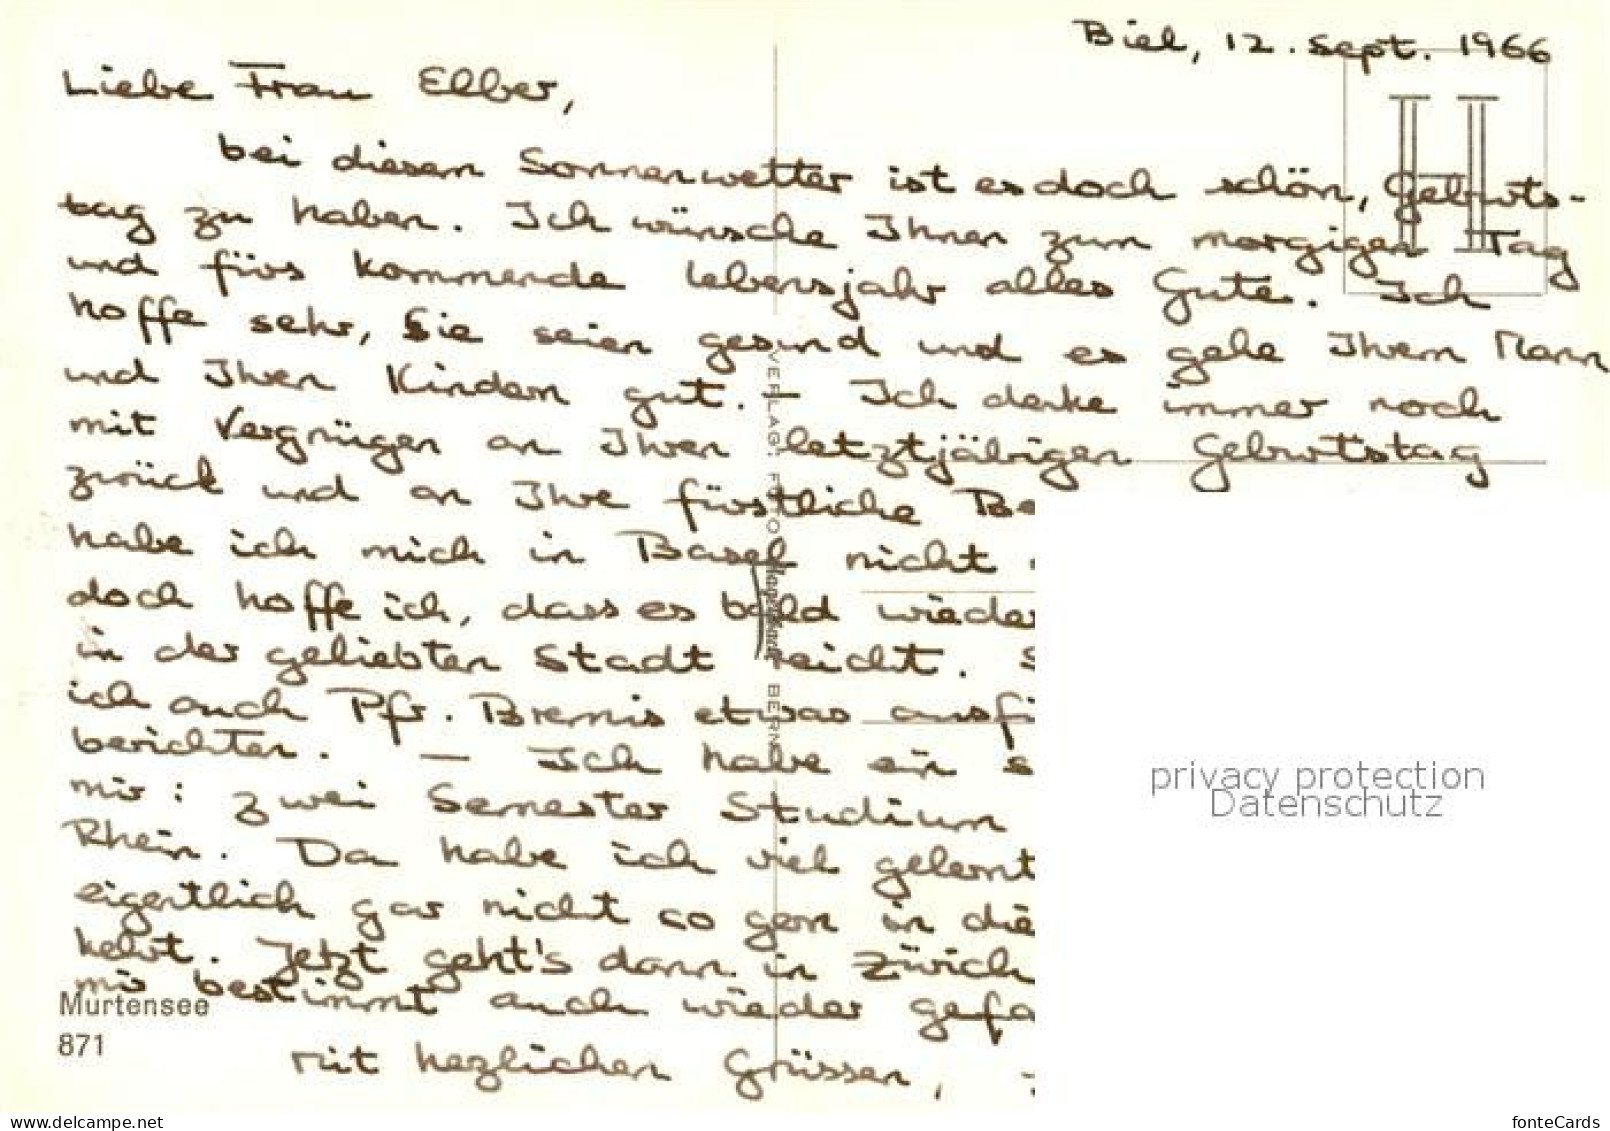 Biel, 12. Sept. 1966
Liebe Frau Elber,
bei diesem Sonnenwetter ist es doch schön, Geburts-
tag zu haben. Ich wünsche Ihnen zum morgigen Tag
und fürs kommende Lebensjahr alles Gute. Ich
hoffe sehr, Sie seien gesund und es gehe Ihrem Mann
und Ihren Kindern gut. – Ich denke immer noch
mit Vergnügen an Ihren letztjährigen Geburtstag
zurück und an Ihre fürstliche Be
habe ich mich in Basel nicht
doch hoffe ich, dass es bald wieder
in der geliebten Stadt reicht. S
ich auch Pfr. Bremis etwas ausfü
berichten. – Ich habe ein s
mir: zwei Semester Studium
Rhein. Da habe ich viel gelernt
eigentlich gar nicht so gern in die
kehrt. Jetzt geht's dann in Zürich
mir bestimmt auch wieder gefa
Mit hezlichen Grüssen,
VERLAG: FOTO BERN
Murtensee
871
privacy protection
Datenschutz
www.delcampe.net
fonteCards